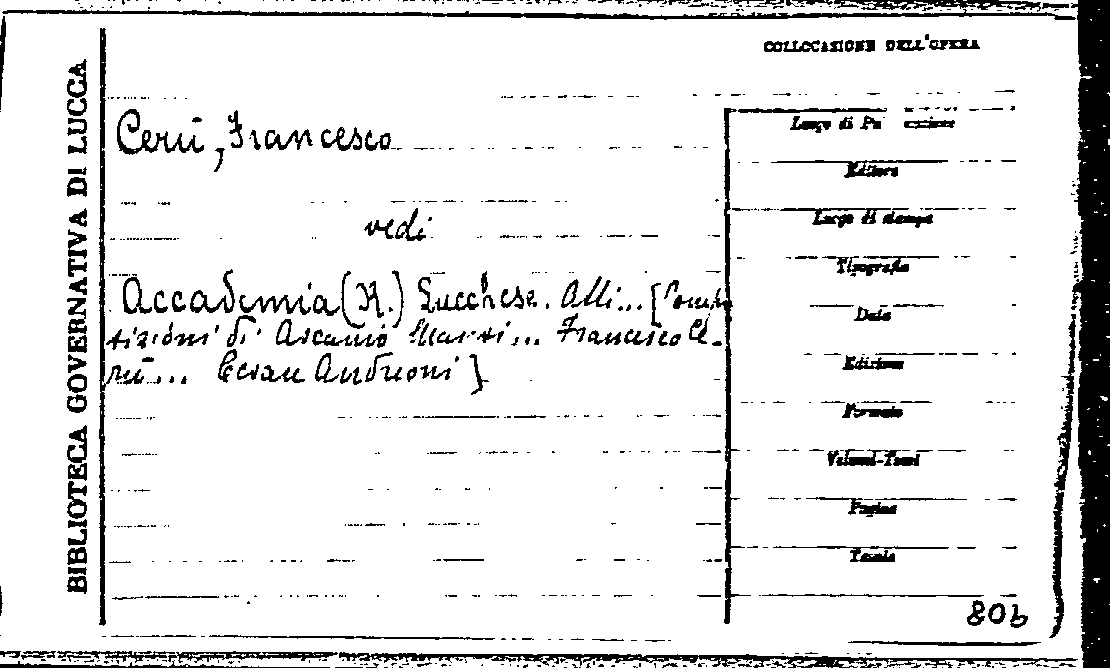 BIBLIOTECA GOVERNATIVA DI LUCCA
COLLOCAZIONE DELL'OPERA
Cerù, Francesco
vedi
Accademia (R.) Lucchese. Atti... [Compo
sizioni di Ascanio Marsi... Francesco Ce-
rù... Cesare Andreoni]
Luogo di Pu azione
Editore
Luogo di stampa
Tipografia
Data
Edizione
Formato
Volumi-Tomi
Pagine
Tavole
80b